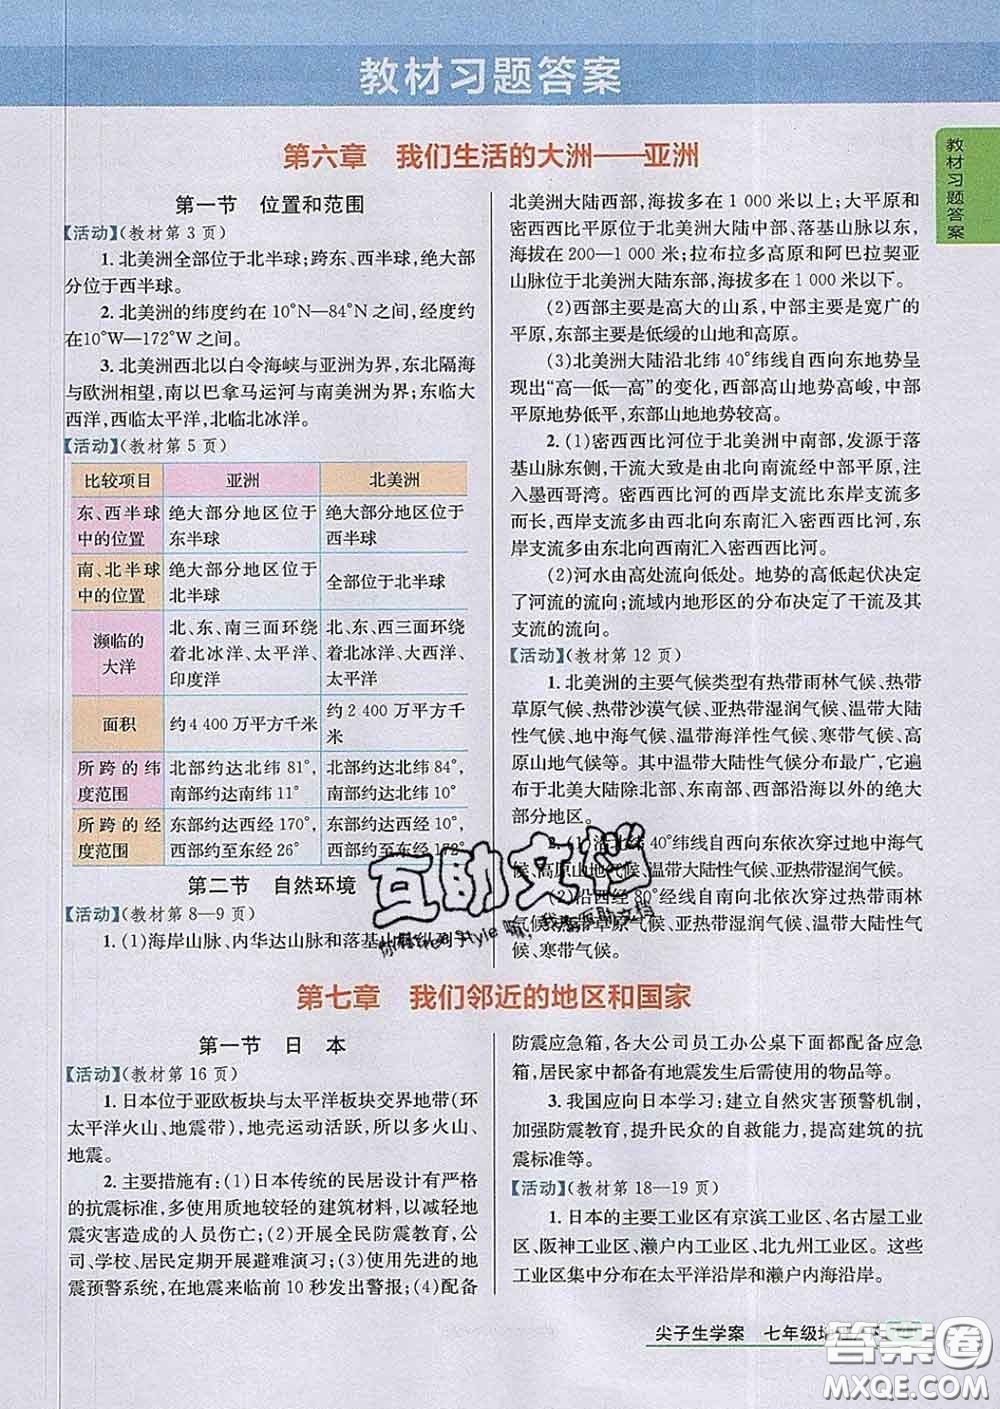 教材习题答案
第六章 我们生活的大洲——亚洲
教材习题答案
第一节 位置和范围
【活动】(教材第3页)
1. 北美洲全部位于北半球;跨东、西半球,绝大
部分位于西半球。
2. 北美洲的纬度约在10°N—84°N之间,经度约
在10°W—172°W之间。
3. 北美洲西北以白令海峡与亚洲为界,东北隔海
与欧洲相望,南以巴拿马运河与南美洲为界;东临大
西洋,西临太平洋,北临北冰洋。
【活动】(教材第5页)
比较项目 亚洲 北美洲
东、西半球中的位置 绝大部分地区位于东半球 绝大部分地区位于西半球
南、北半球中的位置 绝大部分地区位于北半球 全部位于北半球
濒临的大洋 北、东、南三面环绕着北冰洋、太平洋、印度洋 北、东、西三面环绕着北冰洋、大西洋、太平洋
面积 约4 400万平方千米 约2 400万平方千米
所跨的纬度范围 北部约达北纬81°,南部约达南纬11° 北部约达北纬84°,南部约达北纬10°
所跨的经度范围 东部约达西经170°,西部约至东经26° 东部约达西经10°,西部约至西经172°
第二节 自然环境
【活动】(教材第8—9页)
1. (1)海岸山脉、内华达山脉和落基山脉纵列于
北美洲大陆西部,海拔多在1 000米以上;大平原和
密西西比平原位于北美洲大陆中部、落基山脉以东,
海拔在200—1 000米;拉布拉多高原和阿巴拉契亚
山脉位于北美洲大陆东部,海拔多在1 000米以下。
(2)西部主要是高大的山系,中部主要是宽广的
平原,东部主要是低缓的山地和高原。
(3)北美洲大陆沿北纬40°纬线自西向东地势呈
现出“高—低—高”的变化,西部高山地势高峻,中部
平原地势低平,东部山地地势较高。
2. (1)密西西比河位于北美洲中南部,发源于落
基山脉东侧,干流大致是由北向南流经中部平原,注
入墨西哥湾。密西西比河的西岸支流比东岸支流多
而长,西岸支流多由西北向东南汇入密西西比河,东
岸支流多由东北向西南汇入密西西比河。
(2)河水由高处流向低处。地势的高低起伏决定
了河流的流向;流域内地形区的分布决定了干流及其
支流的流向。
【活动】(教材第12页)
1. 北美洲的主要气候类型有热带雨林气候、热带
草原气候、热带沙漠气候、亚热带湿润气候、温带大陆
性气候、地中海气候、温带海洋性气候、寒带气候、高
原山地气候等。其中温带大陆性气候分布最广,它遍
布于北美大陆除北部、东南部、西部沿海以外的绝大
部分地区。
2. (1)沿北纬40°纬线自西向东依次穿过地中海气
候、高原山地气候、温带大陆性气候、亚热带湿润气候。
(2)沿西经80°经线自南向北依次穿过热带雨林
气候、热带草原气候、亚热带湿润气候、温带大陆性气
候、寒带气候。
互助文档
第七章 我们邻近的地区和国家
第一节 日 本
【活动】(教材第16页)
1. 日本位于亚欧板块与太平洋板块交界地带(环
太平洋火山、地震带),地壳运动活跃,所以多火山、
地震。
2. 主要措施有:(1)日本传统的民居设计有严格
的抗震标准,多使用质地较轻的建筑材料,以减轻地
震灾害造成的人员伤亡;(2)开展全民防震教育,公
司、学校、居民定期开展避难演习;(3)使用先进的地
震预警系统,在地震来临前10秒发出警报;(4)配备
防震应急箱,各大公司员工办公桌下面都配备应急
箱,居民家中都备有地震发生后需要使用的物品等。
3. 我国应向日本学习:建立自然灾害预警机制,
加强防震教育,提升民众的自救能力,提高建筑的抗
震标准等。
【活动】(教材第18—19页)
1. 日本的主要工业区有京滨工业区、名古屋工业
区、阪神工业区、濑户内工业区、北九州工业区。这些
工业区集中分布在太平洋沿岸和濑户内海沿岸。
尖子生学案 七年级地理
答案圈
MXQE.COM